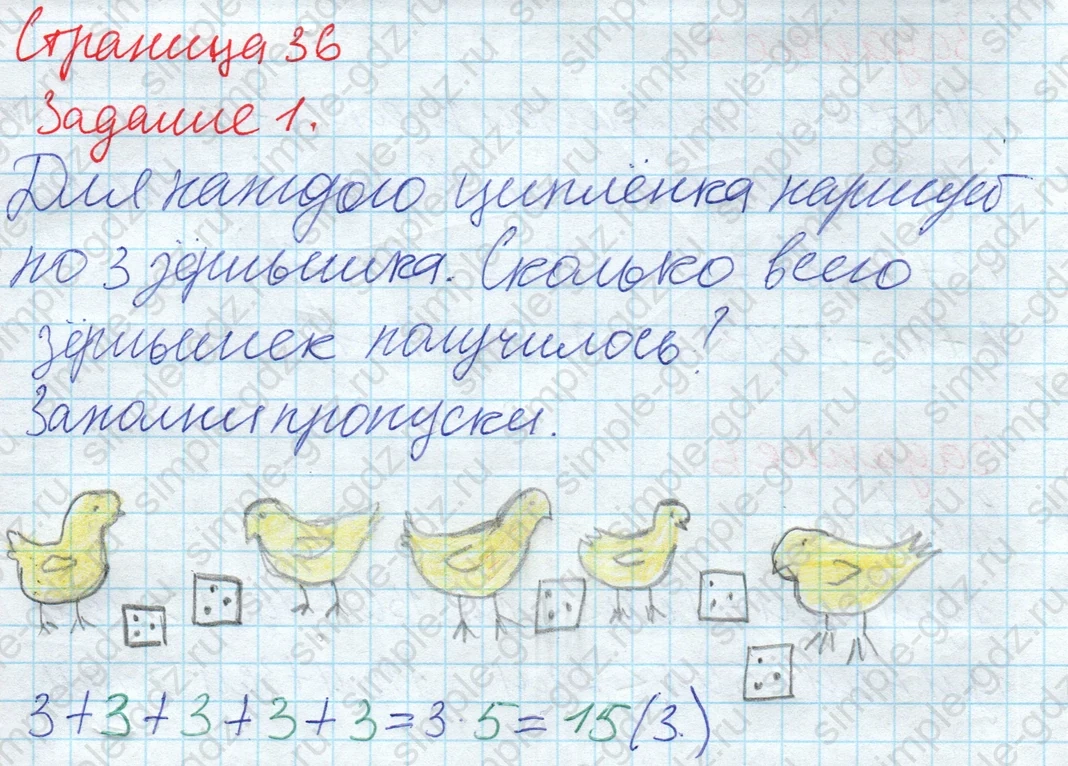 Страница 36
Задание 1.
Для каждого цыплёнка нарисуй
по 3 зёрнышка. Сколько всего
зёрнышек получилось?
Заполни пропуски.
3+3+3+3+3=3·5=15(З.)
simple-gdz.ru